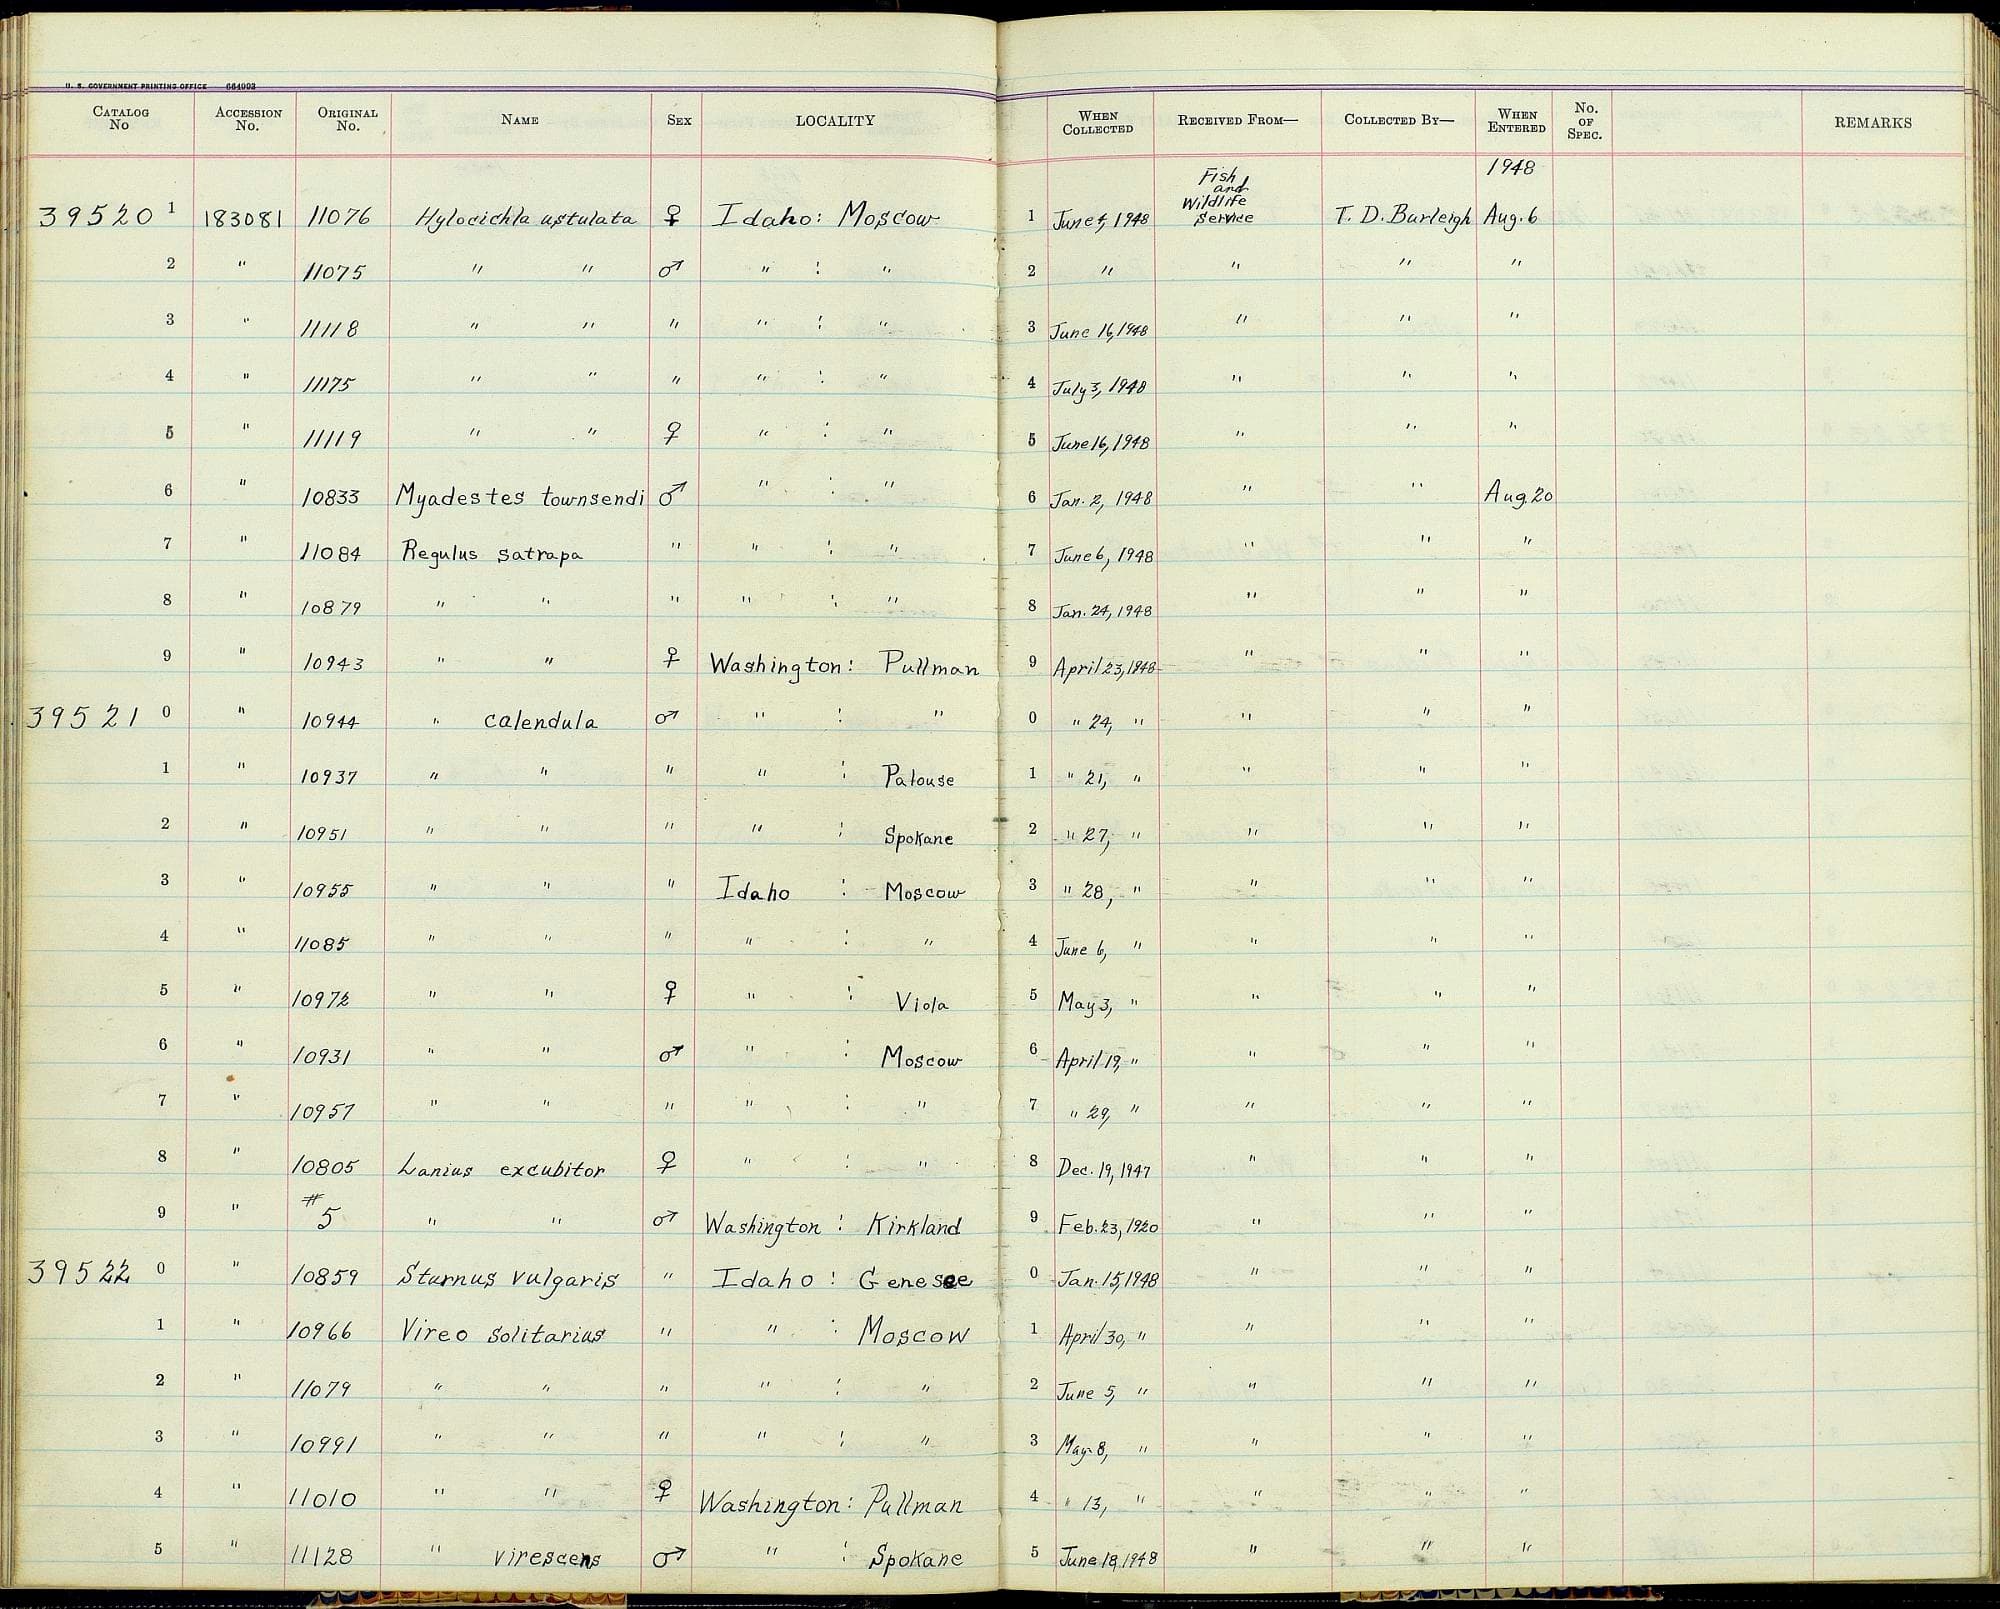 U. S. GOVERNMENT PRINTING OFFICE 664002
CATALOG No ACCESSION No. ORIGINAL No. NAME SEX LOCALITY WHEN COLLECTED RECEIVED FROM— COLLECTED BY— WHEN ENTERED No. OF SPEC. REMARKS
1948
39520 1 183081 11076 Hylocichla ustulata ♀ Idaho: Moscow 1 June 4, 1948 Fish and Wildlife Service T. D. Burleigh Aug. 6
2 " 11075 " " ♂ " : " 2 " " " "
3 " 11118 " " " " : " 3 June 16, 1948 " " "
4 " 11175 " " " " : " 4 July 3, 1948 " " "
5 " 11119 " " ♀ " : " 5 June 16, 1948 " " "
6 " 10833 Myadestes townsendi ♂ " : " 6 Jan. 2, 1948 " " Aug. 20
7 " 11084 Regulus satrapa " " : " 7 June 6, 1948 " " "
8 " 10879 " " " " : " 8 Jan. 24, 1948 " " "
9 " 10943 " " ♀ Washington: Pullman 9 April 23, 1948 " " "
39521 0 " 10944 " calendula ♂ " : " 0 " 24, " " " "
1 " 10937 " " " " : Palouse 1 " 21, " " " "
2 " 10951 " " " " : Spokane 2 " 27, " " " "
3 " 10955 " " " Idaho : Moscow 3 " 28, " " " "
4 " 11085 " " " " : " 4 June 6, " " " "
5 " 10972 " " ♀ " : Viola 5 May 3, " " " "
6 " 10931 " " ♂ " : Moscow 6 April 19, " " " "
7 " 10957 " " " " : " 7 " 29, " " " "
8 " 10805 Lanius excubitor ♀ " : " 8 Dec. 19, 1947 " " "
9 " #5 " " ♂ Washington : Kirkland 9 Feb. 23, 1920 " " "
39522 0 " 10859 Sturnus vulgaris " Idaho : Genesee 0 Jan. 15, 1948 " " "
1 " 10966 Vireo solitarius " " : Moscow 1 April 30, " " " "
2 " 11079 " " " " : " 2 June 5, " " " "
3 " 10991 " " " " : " 3 May 8, " " " "
4 " 11010 " " ♀ Washington: Pullman 4 " 13, " " " "
5 " 11128 " virescens ♂ " : Spokane 5 June 18, 1948 " " "